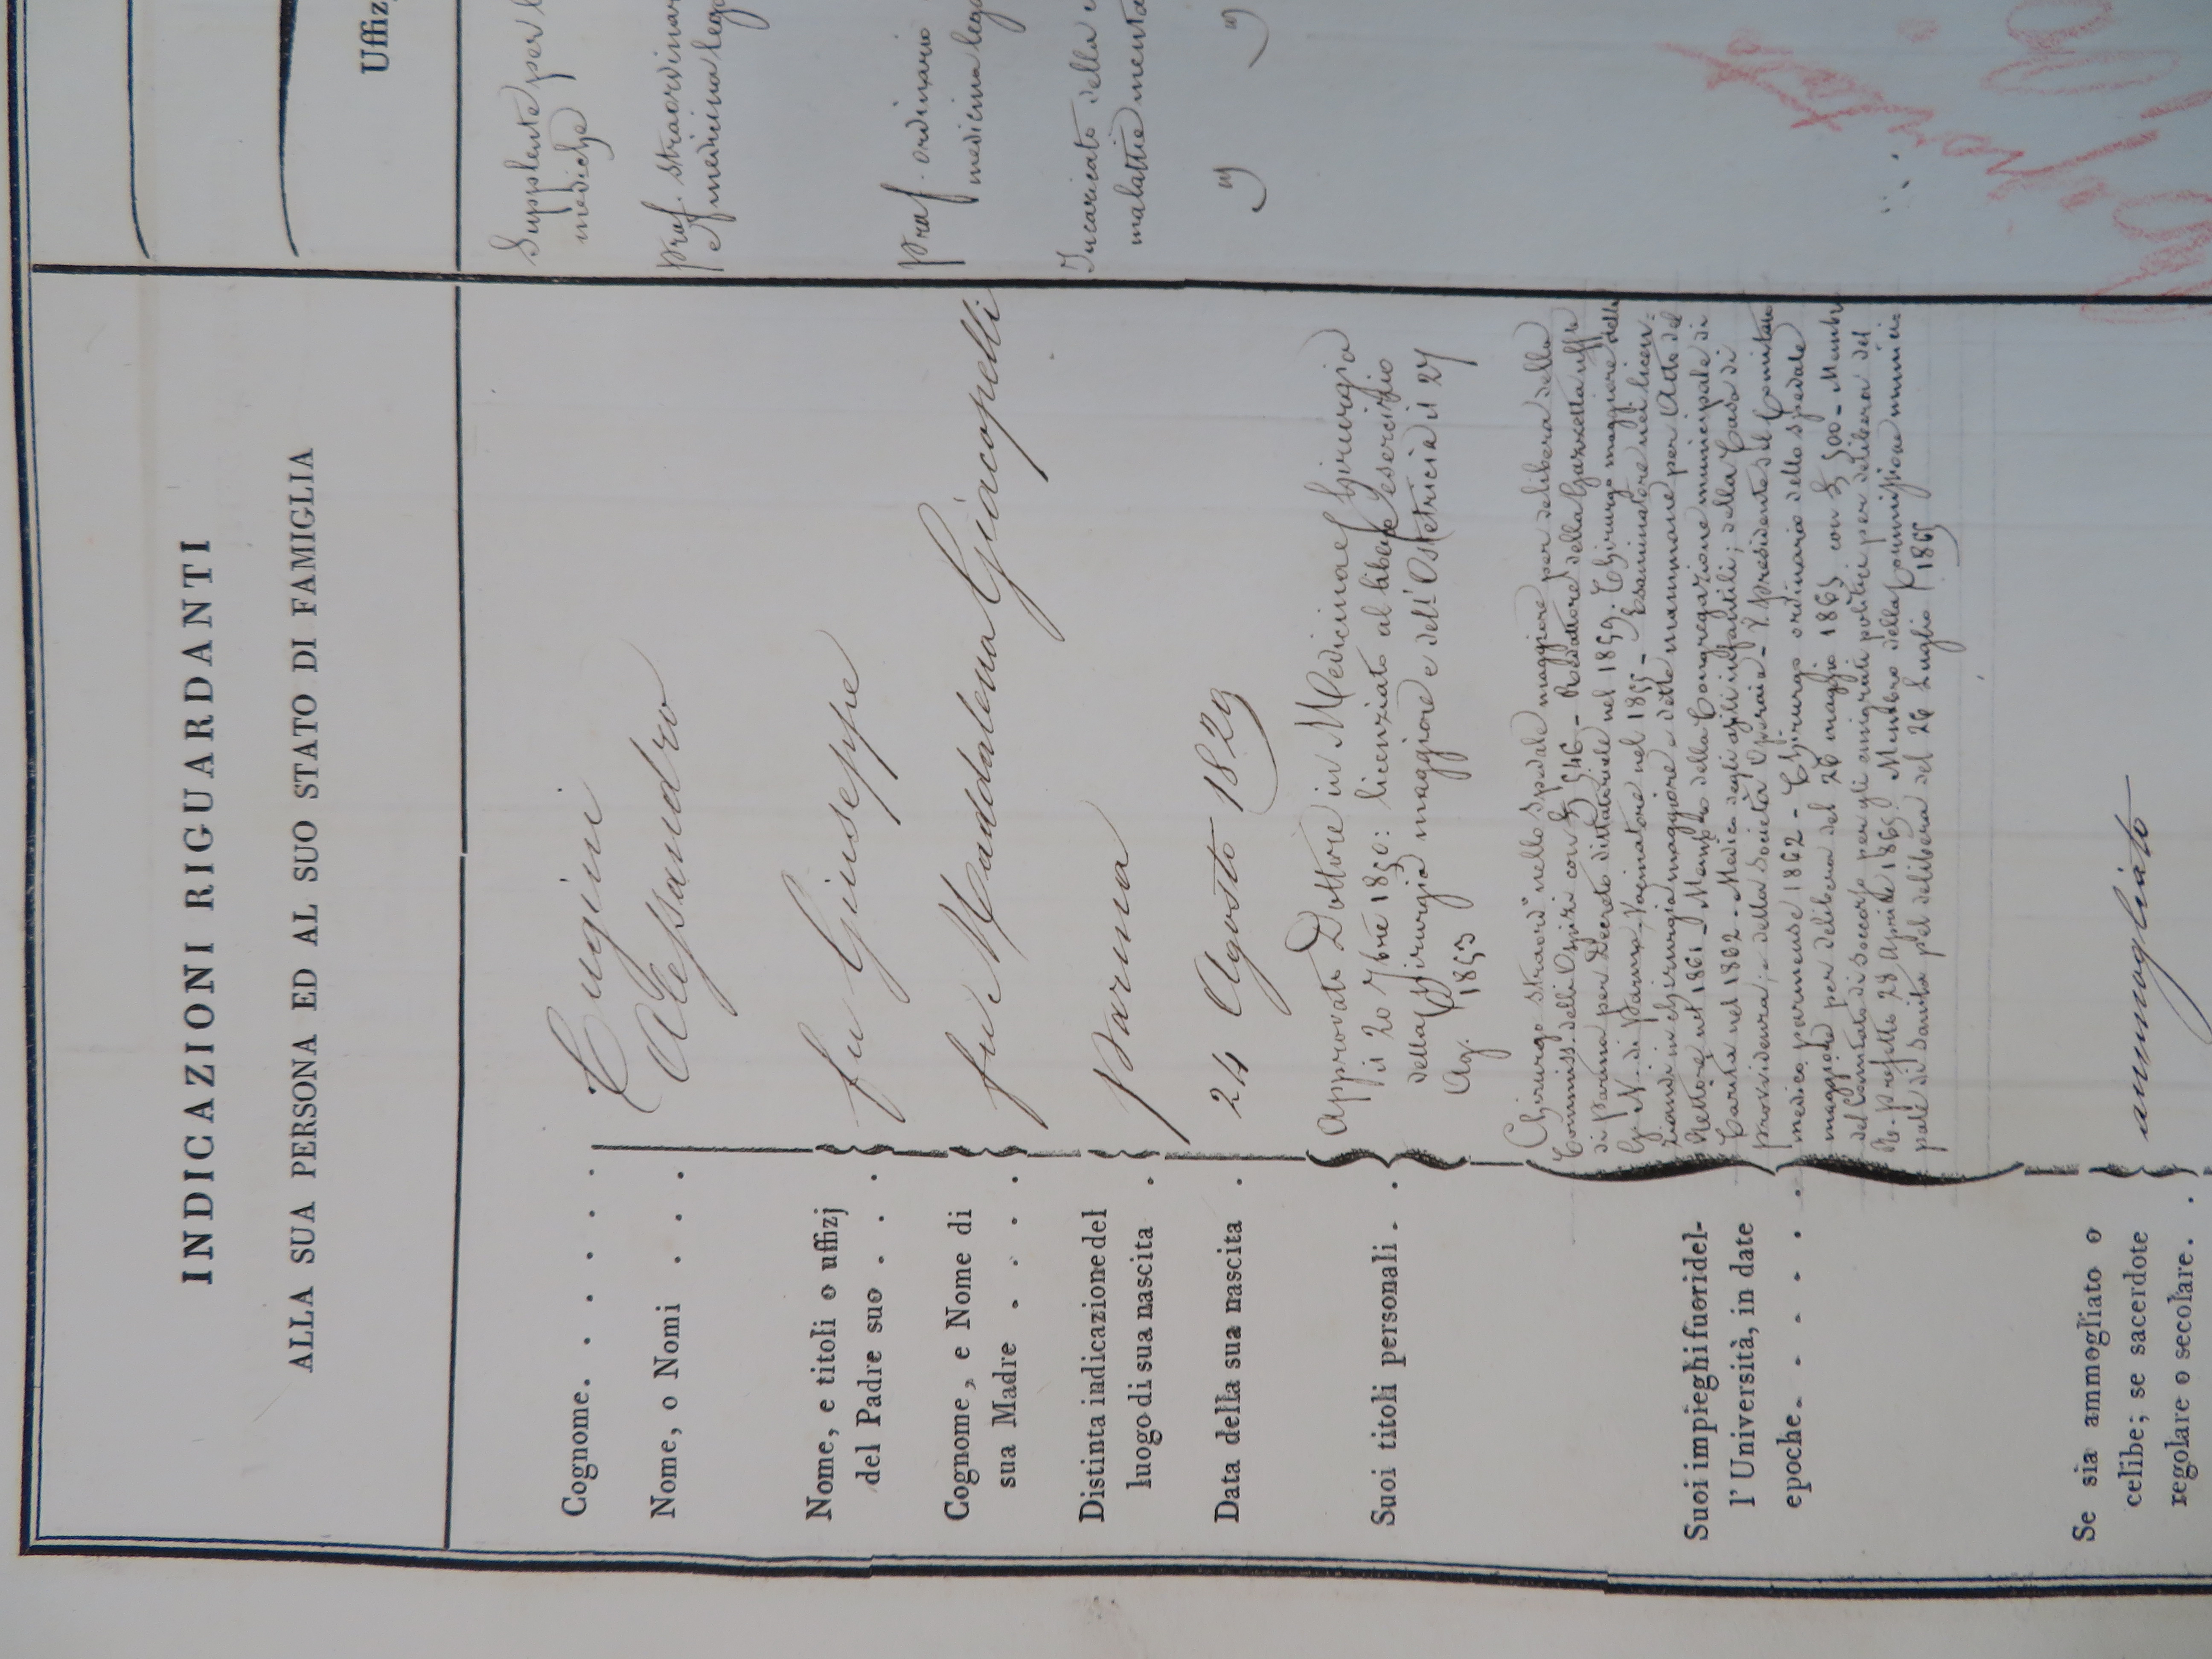 INDICAZIONI RIGUARDANTI
ALLA SUA PERSONA ED AL SUO STATO DI FAMIGLIA
Cognome. . . . . . Cugini
Nome, o Nomi . . . Alessandro
Nome, e titoli o uffizj
del Padre suo . . . fu Giuseppe
Cognome, e Nome di
sua Madre . . . . fu Maddalena Giacopelli
Distinta indicazione del
luogo di sua nascita . Parma
Data della sua nascita . 24 Agosto 1829
Suoi titoli personali . .
Approvato Dottore in Medicina e Chirurgia
il 20 7bre 1850: licenziato al libero esercizio
della Chirurgia maggiore e dell' Ostetricia il 27
Ag. 1853
Suoi impieghi fuori del-
l' Università, in date
epoche. . . . . .
Chirurgo straord.o nello Spedale maggiore per delibera della
Commiss. delli Ospizi con £ 546 - Redattore della Gazzetta uff.le
di Parma per Decreto dittatoriale nel 1859. Chirurgo maggiore della
G. N. di Parma. Vaccinatore nel 1855 - Esaminatore nei licen-
ziandi in chirurgia maggiore e dette mammane per Atto del
Rettore nel 1861 - Membro della Congregazione municipale di
Carità nel 1862 - Medico degli asili infantili; della Casa di
provvidenza; e della Società Operaia - V. Presidente del Comitato
medico parmense 1862 - Chirurgo ordinario dello Spedale
maggiore per delibera del 26 maggio 1865 con £ 500 - Membro
del Comitato di soccorso per gli emigrati politici per delibera del
R. Prefetto 28 Aprile 1865. Membro della Commissione munici-
pale di Sanità per delibera del 26 Luglio 1865
Se sia ammogliato o
celibe; se sacerdote
regolare o secolare. . ammogliato
Uffiz
Supplente per l
mediche
Prof. straordinar
e medicina lega
Prof. ordinario
medicina lega
Incaricato della c
malattie menta